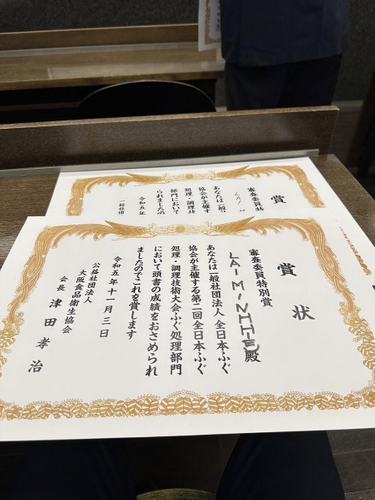 賞状
審査委員特別賞
LAI MINHHIE殿
あなたは一般社団法人 全日本ふぐ
協会が主催する第二回全日本ふぐ
処理・調理技術大会ふぐ処理部門
において頭書の成績をおさめられ
ましたのでこれを賞します
令和五年十一月三日
公益社団法人
大阪食品衛生協会
会長 津田孝治
賞
審査委員特
あなたは一般
協会が主催す
処理・調理技
部門において
られましたの
令和五年
一般社団